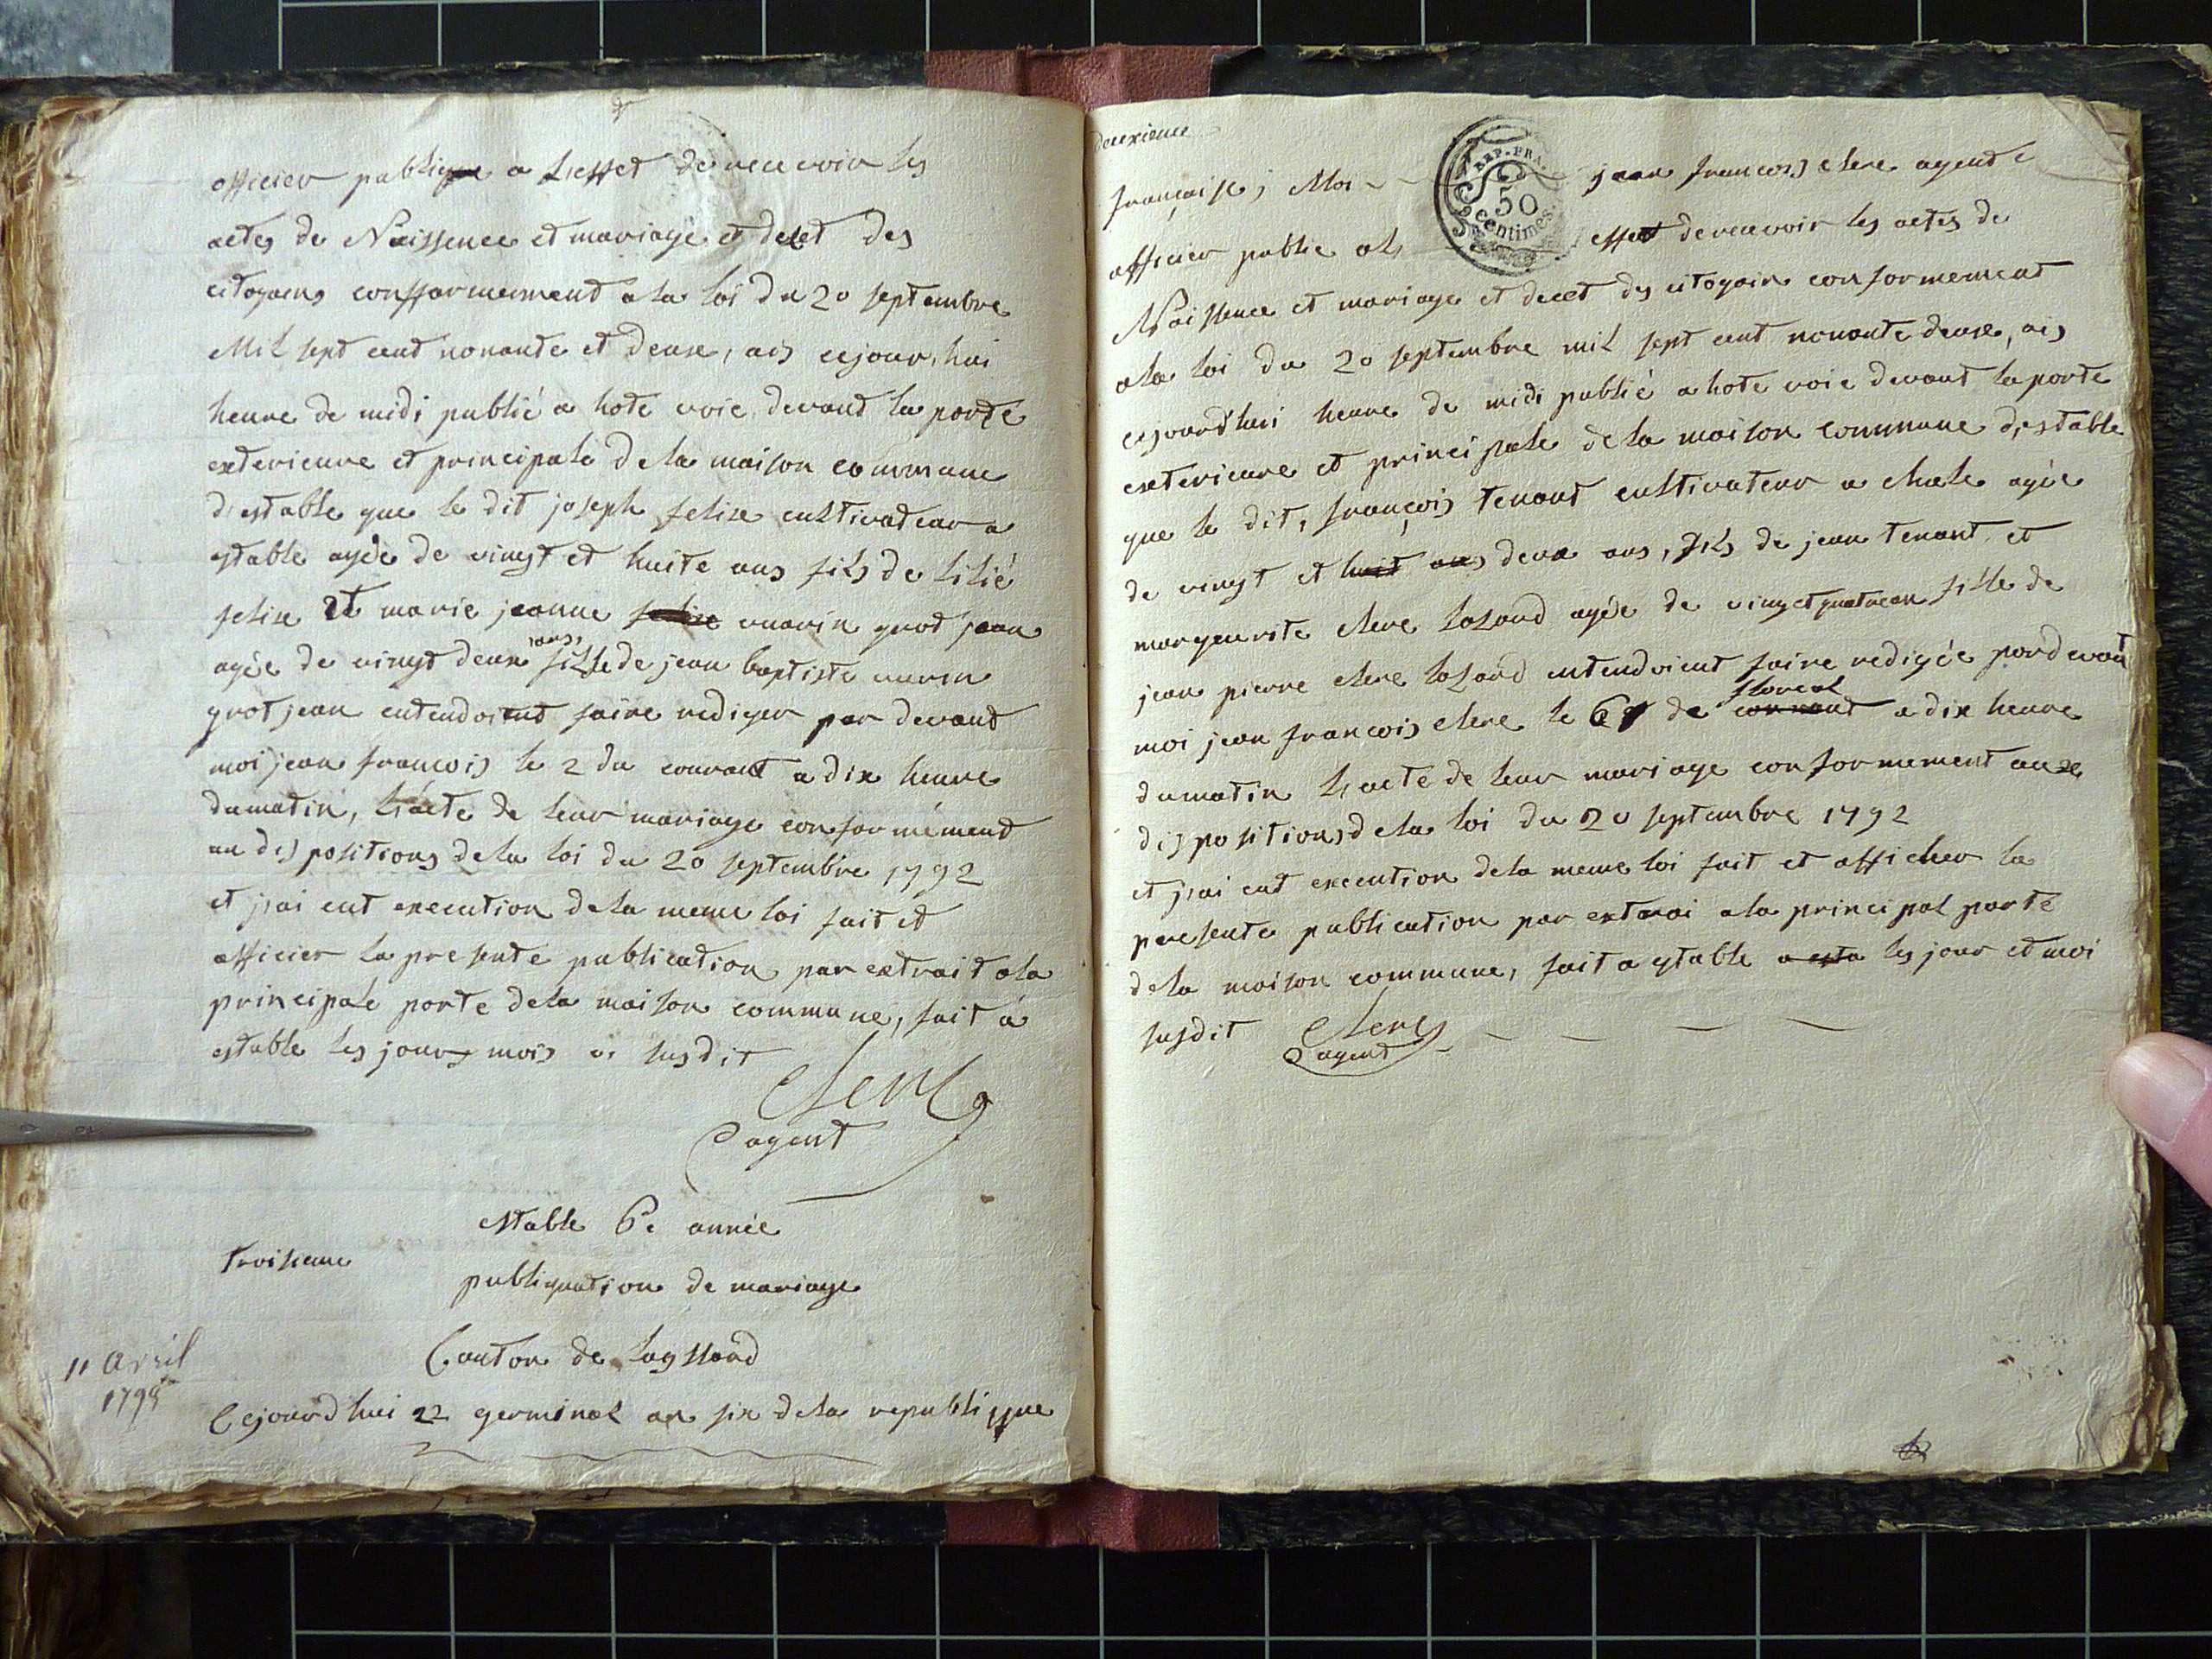 officier publique a l,effet de recevoir les
actes de Naissence et mariage et decet des
citoyens confformement a la loi du 20 septembre
Mil sept cent nonante et deuse, ais cejour,hui
heure de midi publié a hote voie devant la porte
exterieure et principale de la maison commune
d,estable que le dit joseph felise cultivateur a
estable agée de vingt et huite ans fils de
felise Et marie jeanne grod jean
agée de vingt deux ians, fille de jean baptiste
grotjean entendoient faire rediger par devant
moi jean francois le 2 du courant a dix heure
du matin, l,acte de leur mariage conformément
au dispositions de la loi du 20 septembre 1792
et j,ai ent execution de la meme loi fait et
afficier la presente publication par extrait a la
principale porte de la maison commune, fait á
estable les jour mois susdit
Clerc
agent
estable 6e année
Troisieme
publiquation de mariage
Canton de
11 Avril
1798
Cejourd hui 22 germinal an six de la republique
deuxieme
française, Moi jean francois clerc agent
REP. FRA.
50
centimes.
officier public a l, effet de recevoir les actes de
Naissence et mariage et decet des citoyain conformement
a la loi du 20 septembre mil sept cent nonante deuse, ais
cejourd'hui heure de midi publié a hote voie devant la porte
exterieure et principale de la maison commune d,estable
que le dit, françois tenant cultivateur a agée
de vingt et huit ans deux ans, fils de jean tenant et
margeurite clerc agée de vingt quatre an fille de
jean pierre clerc entendoient faire redigée pardevant
moi jean francois clerc le 6 de floreal courant a dix heure
du matin l,acte de leur mariage conformement aux
dispositions de la loi du 20 septembre 1792
et j,ai ent execution de la meme loi fait et afficher la
presente publication par extrai a la principal porte
de la maison commune, fait a estable les jour et moi
susdit Clerc
agent